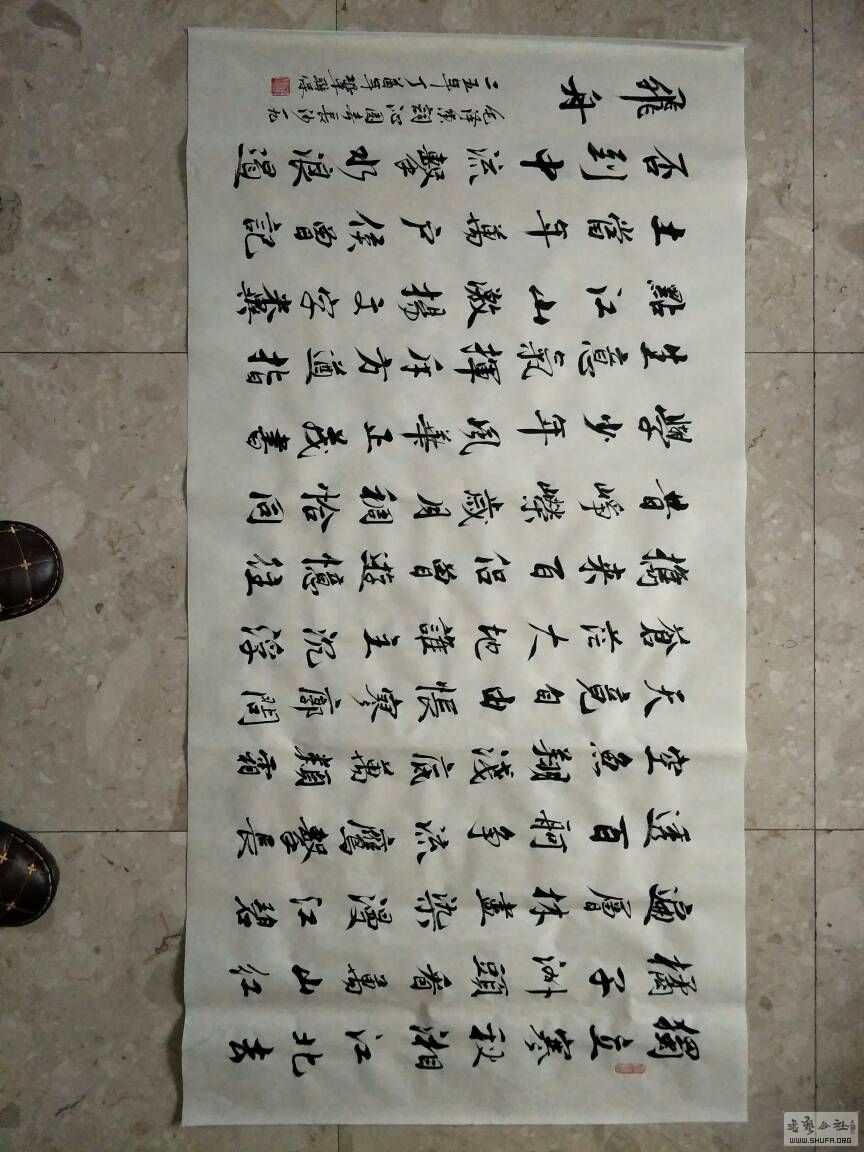 獨立寒秋湘江北去
橘子洲頭看萬山紅
遍層林盡染漫江碧
透百舸爭流鷹擊長
空魚翔淺底萬類霜
天竟自由悵寥廓問
蒼茫大地誰主沉浮
攜來百侣曾遊憶往
昔崢嶸歲月稠恰同
學少年風華正茂書
生意氣揮斥方遒指
點江山激揚文字糞
土當年萬户侯曾記
否到中流擊水浪遏
飛舟
毛澤東詞沁園春長沙一九
二五年丁酉年
WWW.SHUFA.ORG